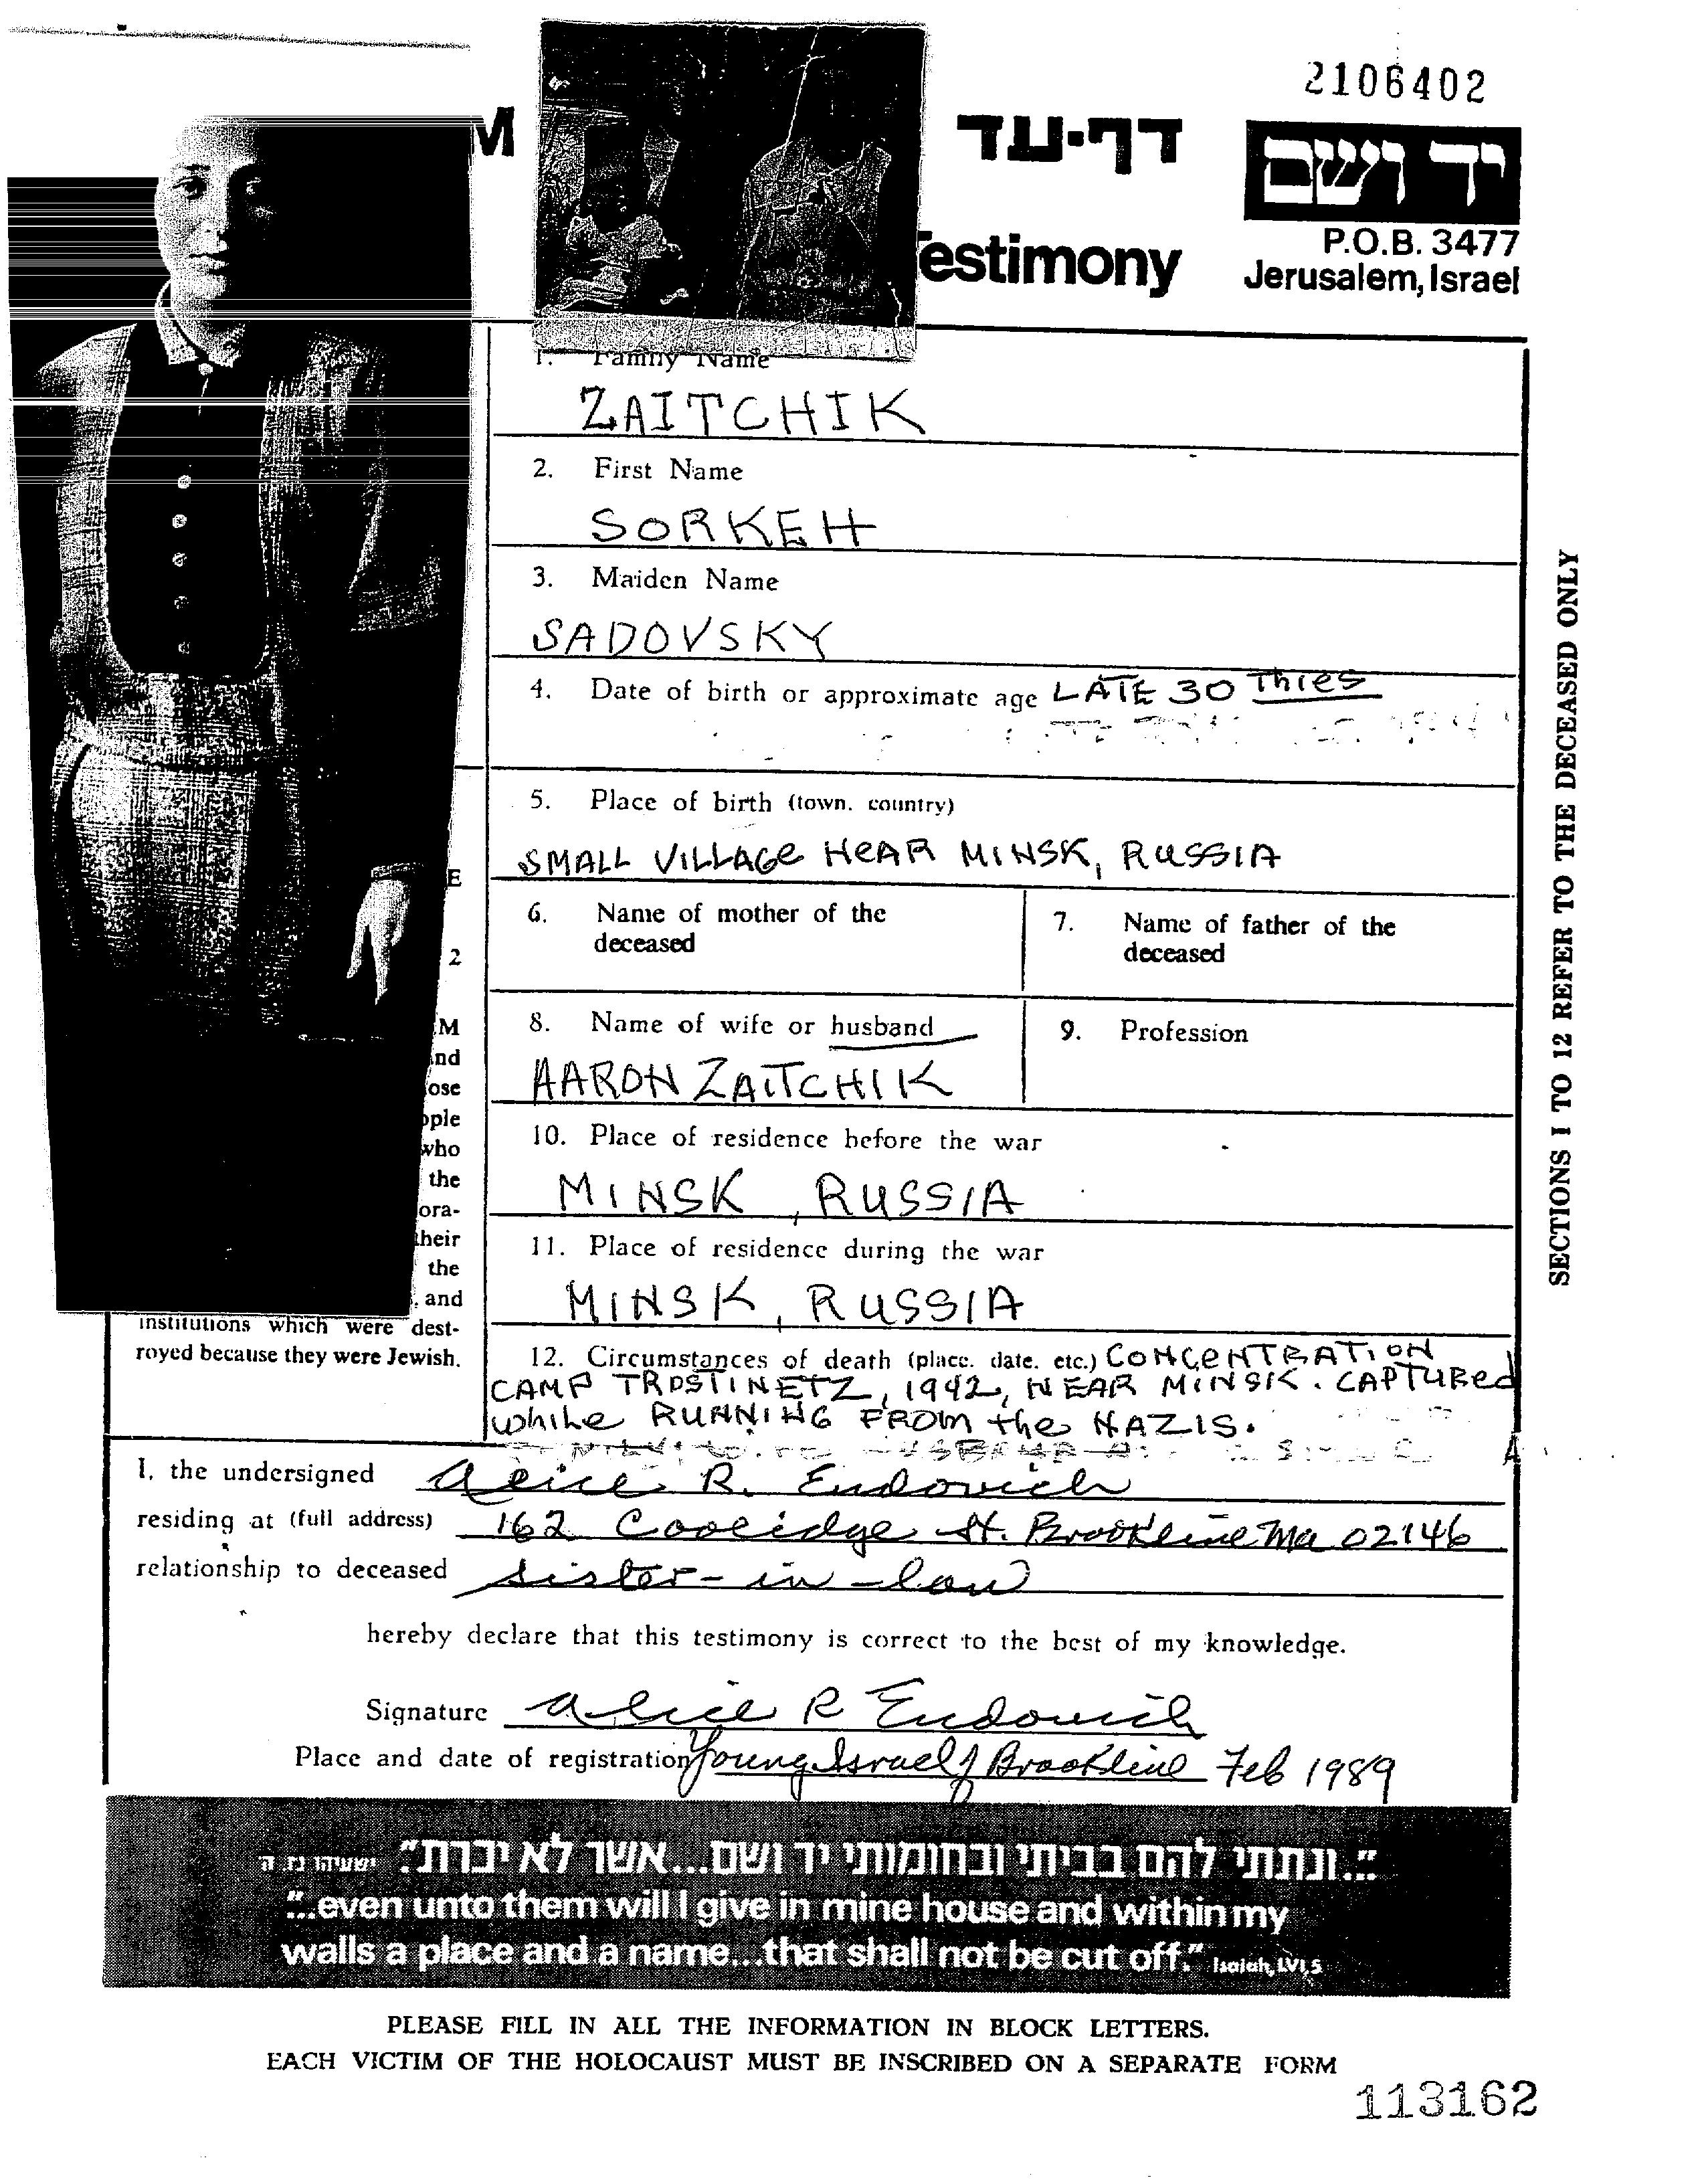 2106402
M
דף-עד
יד ושם
P.O.B. 3477
Testimony
Jerusalem, Israel
1. Family Name
ZAITCHIK
2. First Name
SORKEH
3. Maiden Name
SADOVSKY
4. Date of birth or approximate age LATE 30 Thies
5. Place of birth (town. country)
SMALL VILLAGE NEAR MINSK, RUSSIA
E
6. Name of mother of the
deceased
7. Name of father of the
deceased
2
8. Name of wife or husband
AARON ZAITCHIK
9. Profession
M
nd
ose
ople
who
the
ora-
their
the
, and
institutions which were dest-
royed because they were Jewish.
10. Place of residence before the war
MINSK, RUSSIA
11. Place of residence during the war
MINSK, RUSSIA
12. Circumstances of death (place. date. etc.) CONCENTRATION
CAMP TROSTINETZ, 1942, NEAR MINSK. CAPTURED
while RUNNING FROM the NAZIS.
SECTIONS 1 TO 12 REFER TO THE DECEASED ONLY
I, the undersigned Alice R. Eudovich
residing at (full address) 162 Coolidge St. Brookline Ma 02146
relationship to deceased sister-in-law
hereby declare that this testimony is correct to the best of my knowledge.
Signature Alice R Eudovich
Place and date of registration Young Israel of Brookline Feb 1989
"...ונתתי להם בביתי ובחומותי יד ושם...אשר לא יכרת" ישעיהו נו ה
"...even unto them will I give in mine house and within my
walls a place and a name...that shall not be cut off." Isaiah, LVI,5
PLEASE FILL IN ALL THE INFORMATION IN BLOCK LETTERS.
EACH VICTIM OF THE HOLOCAUST MUST BE INSCRIBED ON A SEPARATE FORM
113162